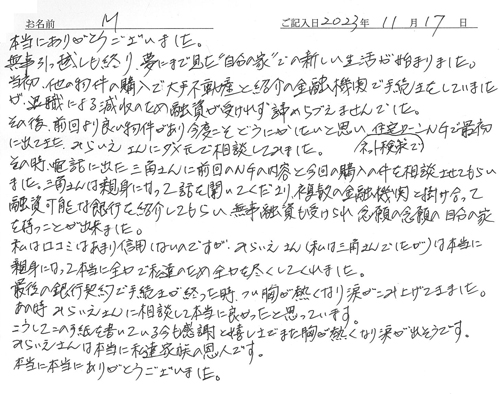 お名前 M ご記入日 2023年 11月 17日
本当にありがとうございました。
無事引っ越しも終り、夢にまで見た"自分の家"での新しい生活が始まりました。
当初、他の物件の購入で大手不動産と紹介の金融機関で手続きをしていました
が、退職による減収のため融資が受けれず諦めざるえませんでした。
その後、前回より良い物件があり今度こそどうにかしたいと思い、住宅ローンNGで最初
に出てきた、みらいえさんにダメ元で相談してみました。 (ネット検索で)
その時、電話に出た三角さんに前回のNGの内容と今回の購入の件を相談させてもらい
ました。三角さんは親身になって話を聞いてくださり、複数の金融機関と掛け合って
融資可能な銀行を紹介してもらい、無事融資も受けられ念願の念願の自分の家
を持つことが出来ました。
私は口コミはあまり信用しないのですが、みらいえさん(私は三角さんでしたが)は本当に
親身になって本当に全力で私達のため全力を尽くしてくれました。
最後の銀行契約で手続きが終った時、つい胸が熱くなり涙がこみ上げてきました。
あの時みらいえさんに相談して本当に良かったと思っています。
こうしてこの手紙を書いている今も感謝と嬉しさでまた胸が熱くなり涙が出そうです。
みらいえさんは本当に私達家族の恩人です。
本当に本当にありがとうございました。